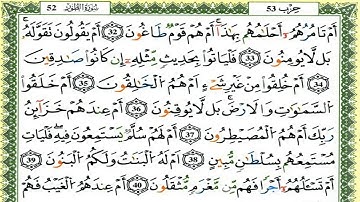 52 سُورَةُ الطُّورِ حِزْب 53
أَمْ تَأْمُرُهُمُ أَحْلَامُهُم بِهَٰذَا أَمْ هُمْ قَوْمٌ طَاغُونَ 32 أَمْ يَقُولُونَ تَقَوَّلَهُ
بَل لَّا يُومِنُونَ 33 فَلْيَاتُوا بِحَدِيثٍ مِّثْلِهِ إِن كَانُوا صَادِقِينَ
34 أَمْ خُلِقُوا مِنْ غَيْرِ شَيْءٍ أَمْ هُمُ الْخَالِقُونَ 35 أَمْ خَلَقُوا
السَّمَاوَاتِ وَالْأَرْضَ بَل لَّا يُوقِنُونَ 36 أَمْ عِندَهُمْ خَزَائِنُ
رَبِّكَ أَمْ هُمُ الْمُصَيْطِرُونَ 37 أَمْ لَهُمْ سُلَّمٌ يَسْتَمِعُونَ فِيهِ فَلْيَاتِ
مُسْتَمِعُهُم بِسُلْطَانٍ مُّبِينٍ 38 أَمْ لَهُ الْبَنَاتُ وَلَكُمُ الْبَنُونَ 39
أَمْ تَسْأَلُهُمْ أَجْرًا فَهُم مِّن مَّغْرَمٍ مُّثْقَلُونَ 40 أَمْ عِندَهُمُ الْغَيْبُ فَهُمْ